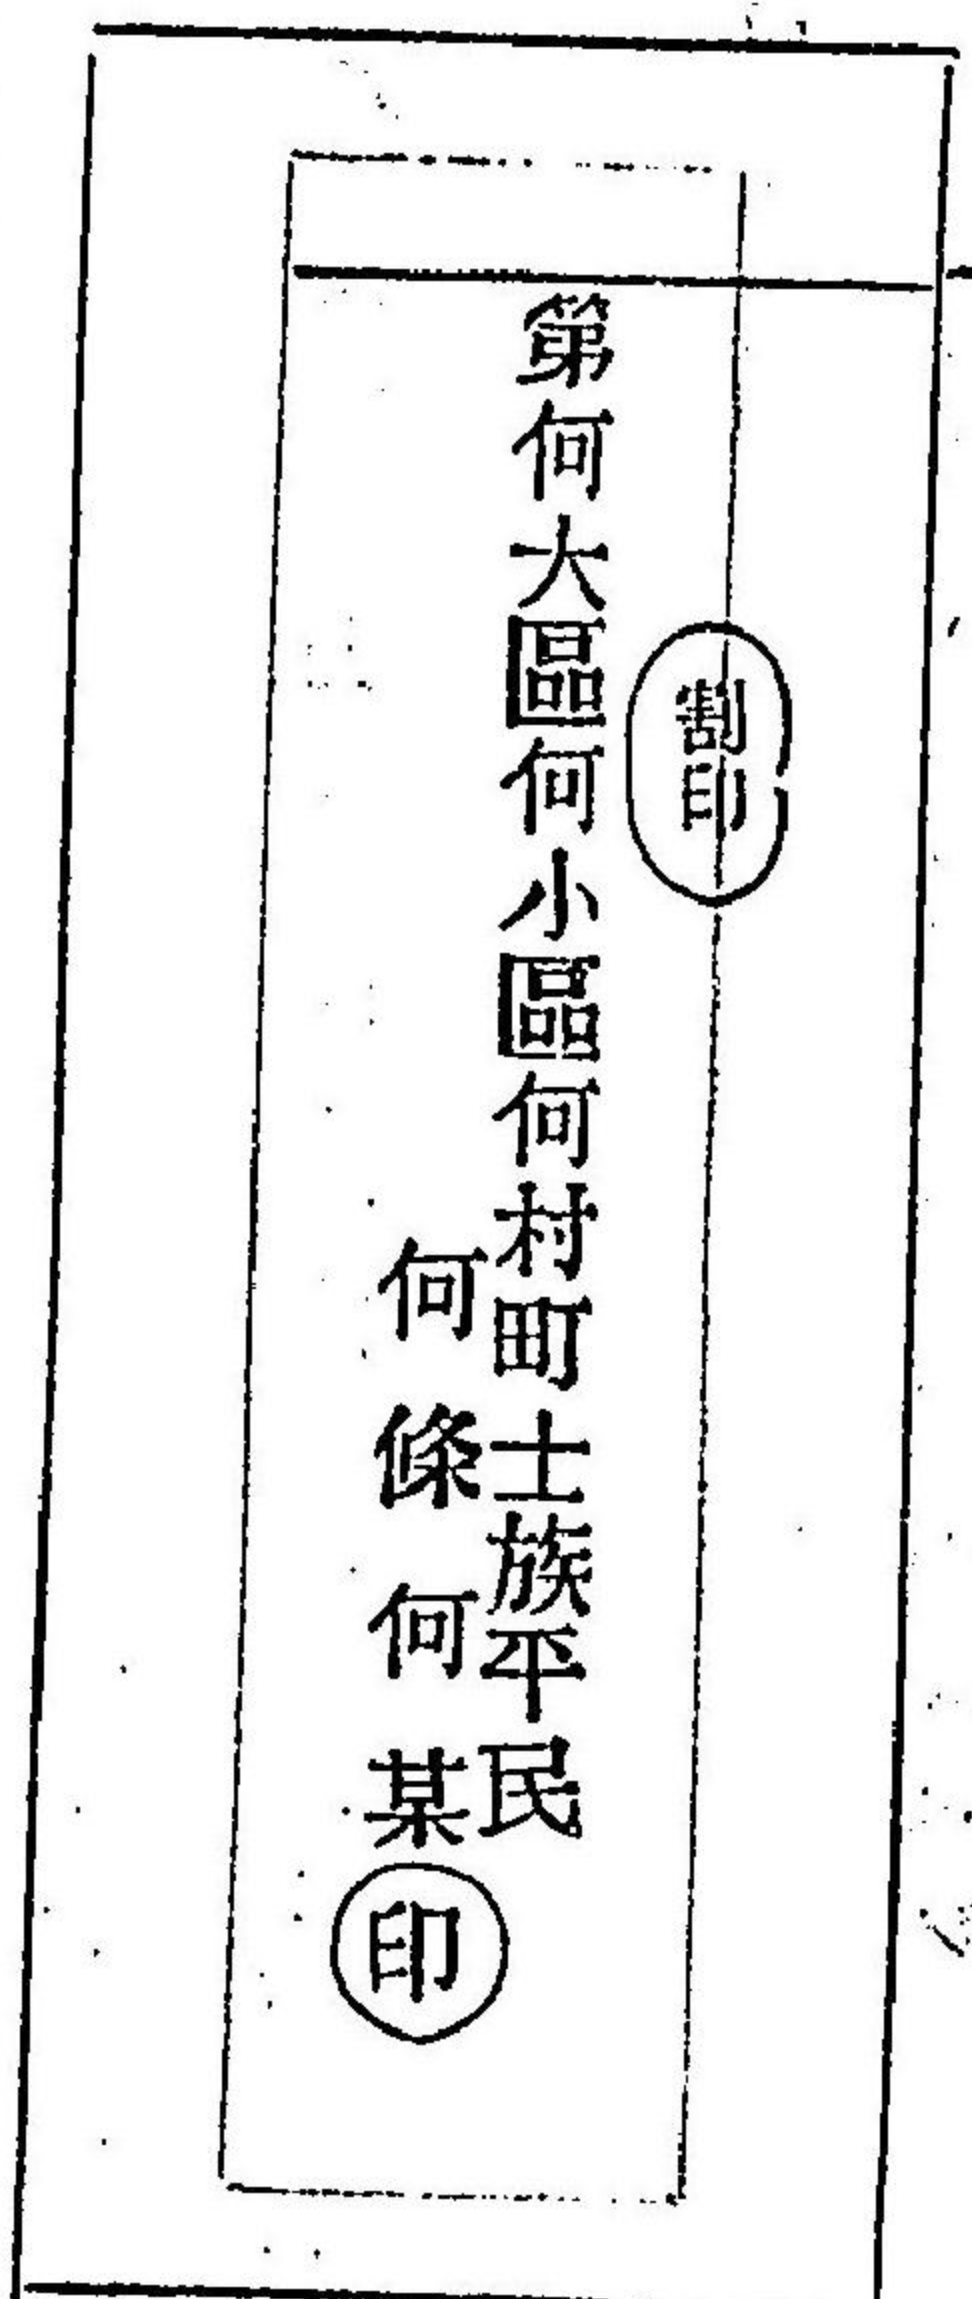 割印
第何大區何小區何村町士族平民
何條何某
印